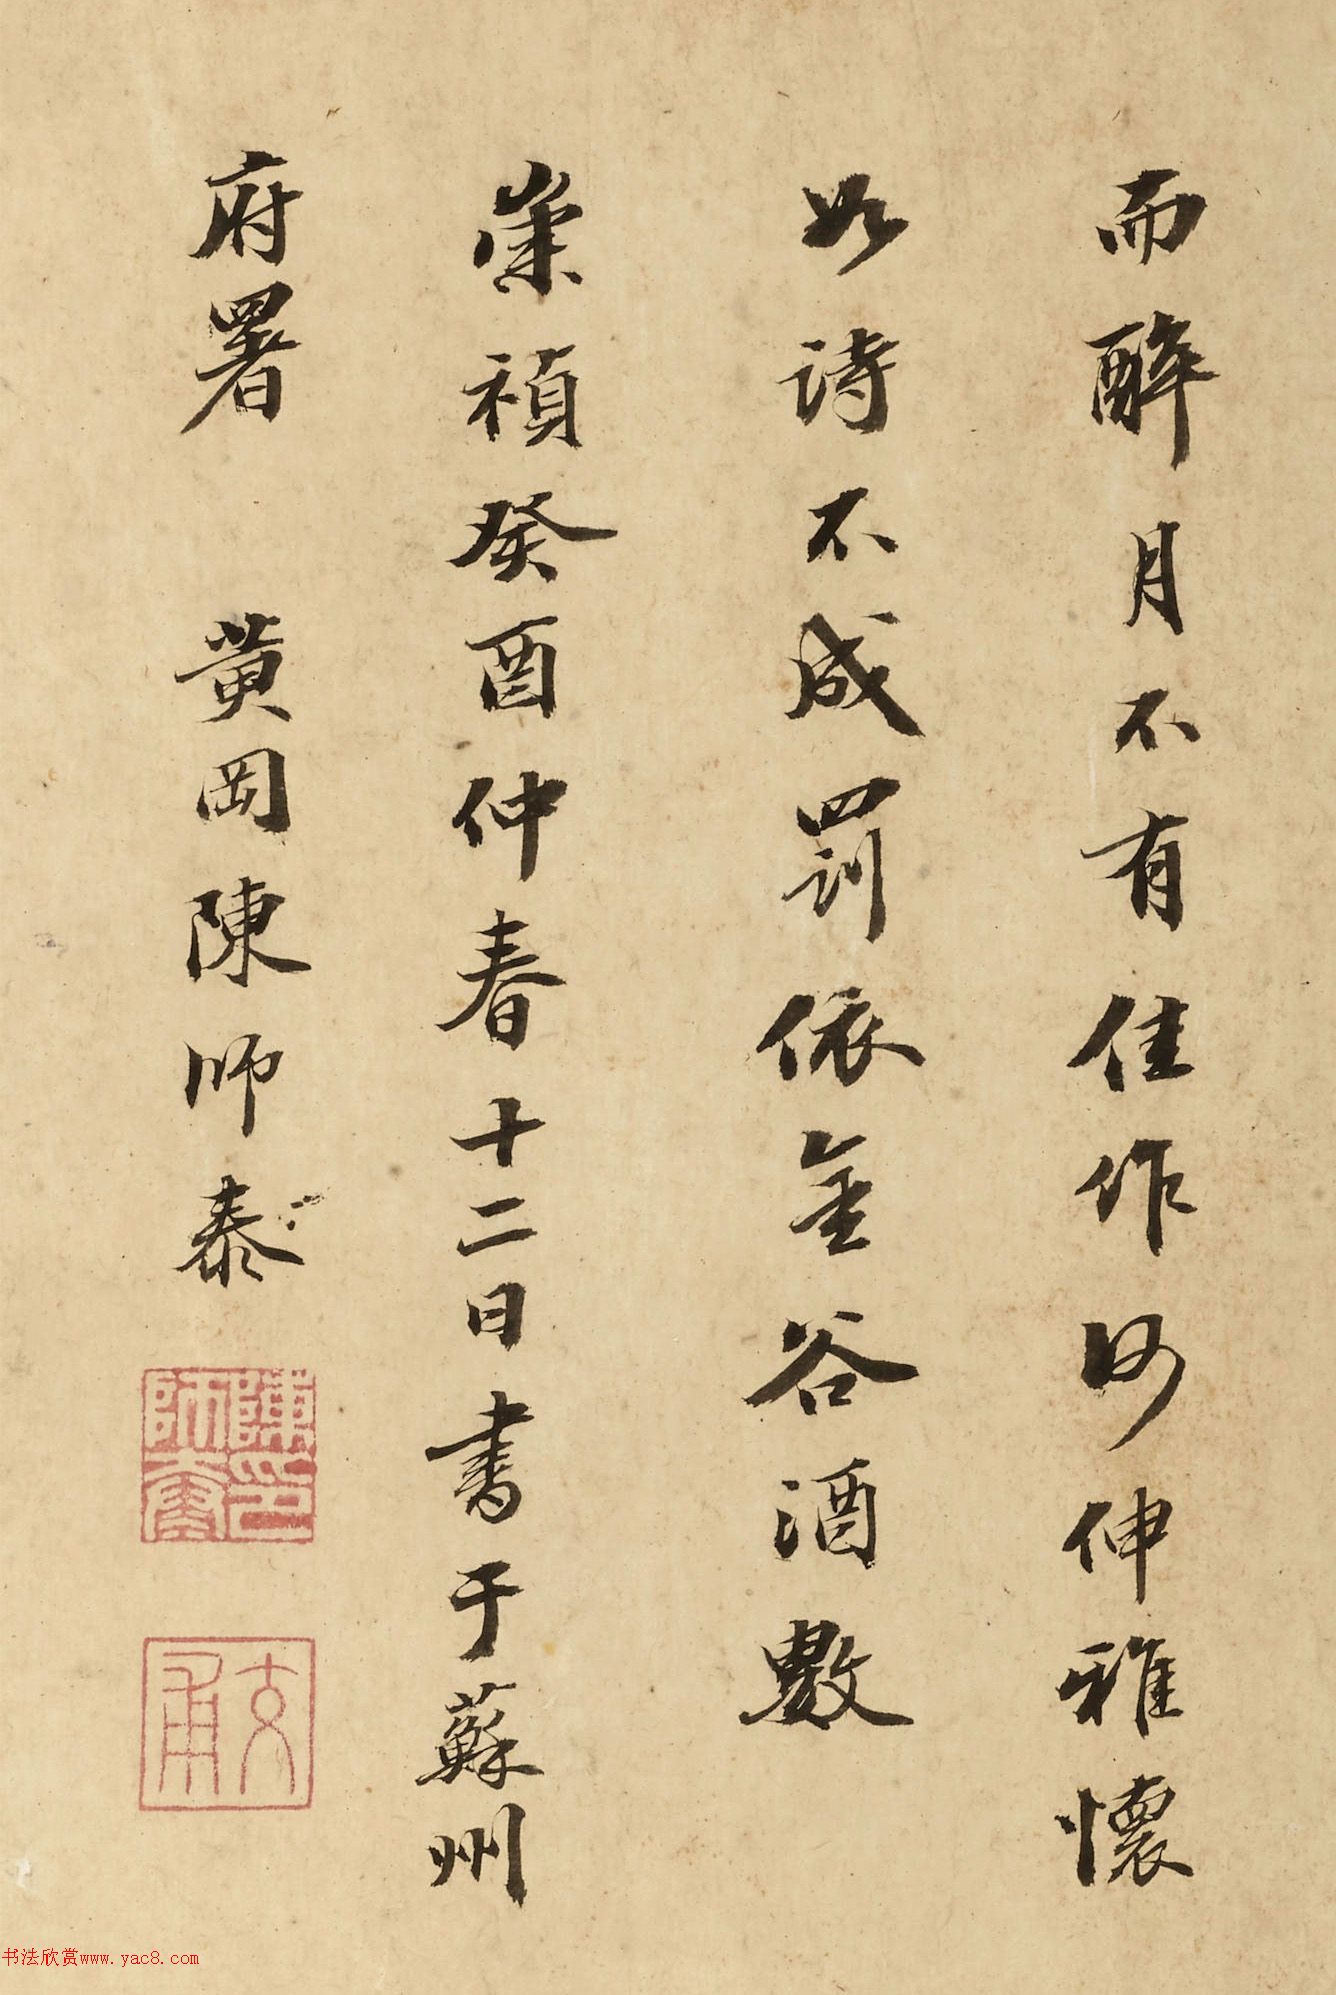 而醉月不有佳作何伸雅懷
如詩不成罰依金谷酒數
崇禎癸酉仲春十二日書于蘇州
府署 黃岡陳師泰
陳印師泰
交甫
书法欣赏www.yac8.com